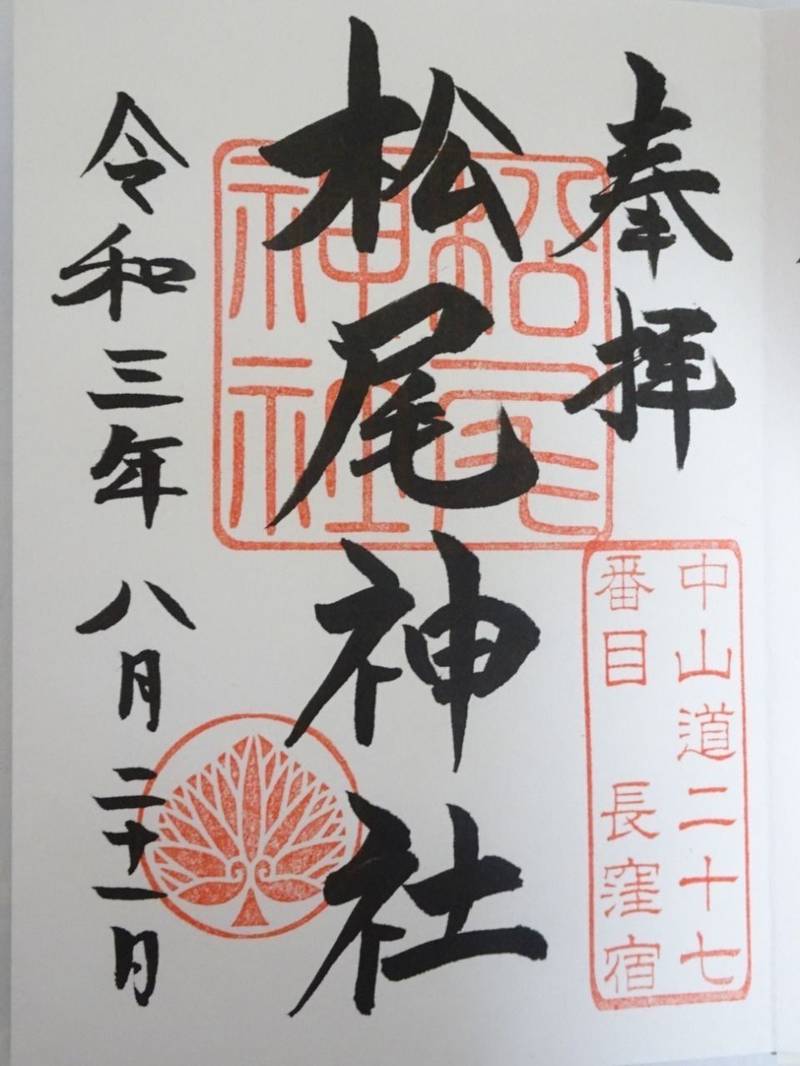 奉拝
中山道二十七
番目 長窪宿
松尾神社
松尾
神社
令和三年 八月二十一日